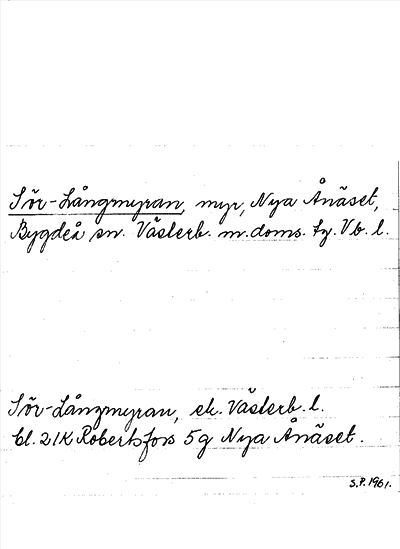 Sör-Långmyran, myr, Nya Ånäset,
Bygdeå sn. Västerb. m.doms. tg. Vb. l.
Sör-Långmyran, ek. Västerb. l.
bl. 21K Robertsfors 5g Nya Ånäset.
S.P. 1961.